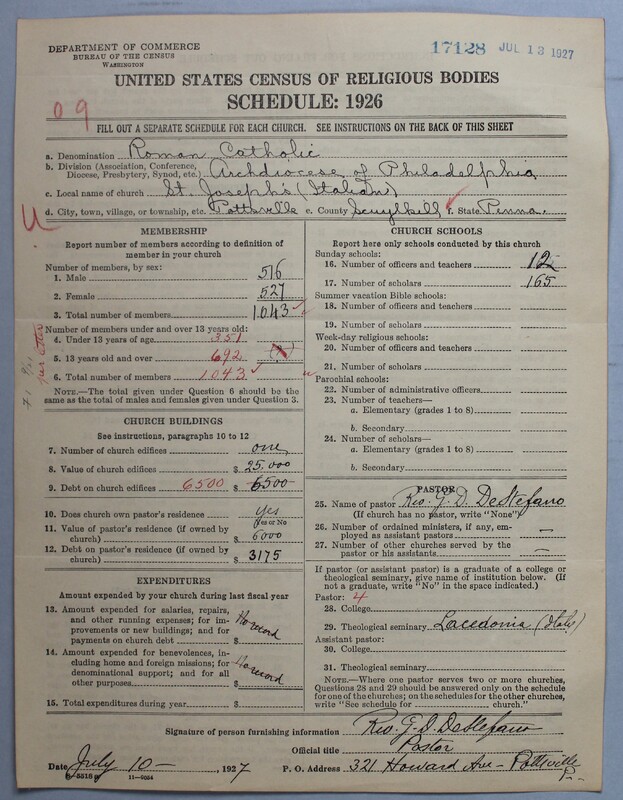 DEPARTMENT OF COMMERCE
BUREAU OF THE CENSUS
WASHINGTON
17128 JUL 13 1927
UNITED STATES CENSUS OF RELIGIOUS BODIES
SCHEDULE: 1926
09
FILL OUT A SEPARATE SCHEDULE FOR EACH CHURCH. SEE INSTRUCTIONS ON THE BACK OF THIS SHEET
a. Denomination Roman Catholic
b. Division (Association, Conference, Diocese, Presbytery, Synod, etc.) Archdiocese of Philadelphia
c. Local name of church St. Joseph's (Italian)
d. City, town, village, or township, etc. Pottsville e. County Scuylkill f. State Penna.
MEMBERSHIP
Report number of members according to definition of
member in your church
Number of members, by sex:
1. Male 516
2. Female 527
3. Total number of members 1043
Number of members under and over 13 years old:
4. Under 13 years of age 351
5. 13 years old and over 692
6. Total number of members 1043
NOTE.—The total given under Question 6 should be
same as the total of males and females given under Question 3.
CHURCH BUILDINGS
See instructions, paragraphs 10 to 12
7. Number of church edifices one
8. Value of church edifices $ 25.000
9. Debt on church edifices 6500 $ 6500
10. Does church own pastor's residence yes
(Yes or No)
11. Value of pastor's residence (if owned by
church) $ 6000
12. Debt on pastor's residence (if owned by
church) $ 3175
EXPENDITURES
Amount expended by your church during last fiscal year
13. Amount expended for salaries, repairs,
and other running expenses; for im-
provements or new buildings; and for
payments on church debt $ No record
14. Amount expended for benevolences, in-
cluding home and foreign missions; for
denominational support; and for all
other purposes $ No record
15. Total expenditures during year $
CHURCH SCHOOLS
Report here only schools conducted by this church
Sunday schools:
16. Number of officers and teachers 12
17. Number of scholars 165
Summer vacation Bible schools:
18. Number of officers and teachers
19. Number of scholars
Week-day religious schools:
20. Number of officers and teachers
21. Number of scholars
Parochial schools:
22. Number of administrative officers
23. Number of teachers—
a. Elementary (grades 1 to 8)
b. Secondary
24. Number of scholars—
a. Elementary (grades 1 to 8)
b. Secondary
PASTOR
25. Name of pastor Rev. G. D. DeStefano
(If church has no pastor, write "None")
26. Number of ordained ministers, if any, em-
ployed as assistant pastors —
27. Number of other churches served by the
pastor or his assistants —
If pastor (or assistant pastor) is a graduate of a college or
theological seminary, give name of institution below. (If
not a graduate, write "No" in the space indicated.)
Pastor: 4
28. College
29. Theological seminary Lacedonia (Italy)
Assistant pastor:
30. College
31. Theological seminary
NOTE.—Where one pastor serves two or more churches,
Questions 28 and 29 should be answered only on the schedule
for one of the churches; on the schedules for the other churches,
write "See schedule for church."
Signature of person furnishing information Rev. G. D. DeStefano
Official title Pastor
Date July 10 — , 1927 P. O. Address 321 Howard Ave - Pottsville
Pa
11-9054